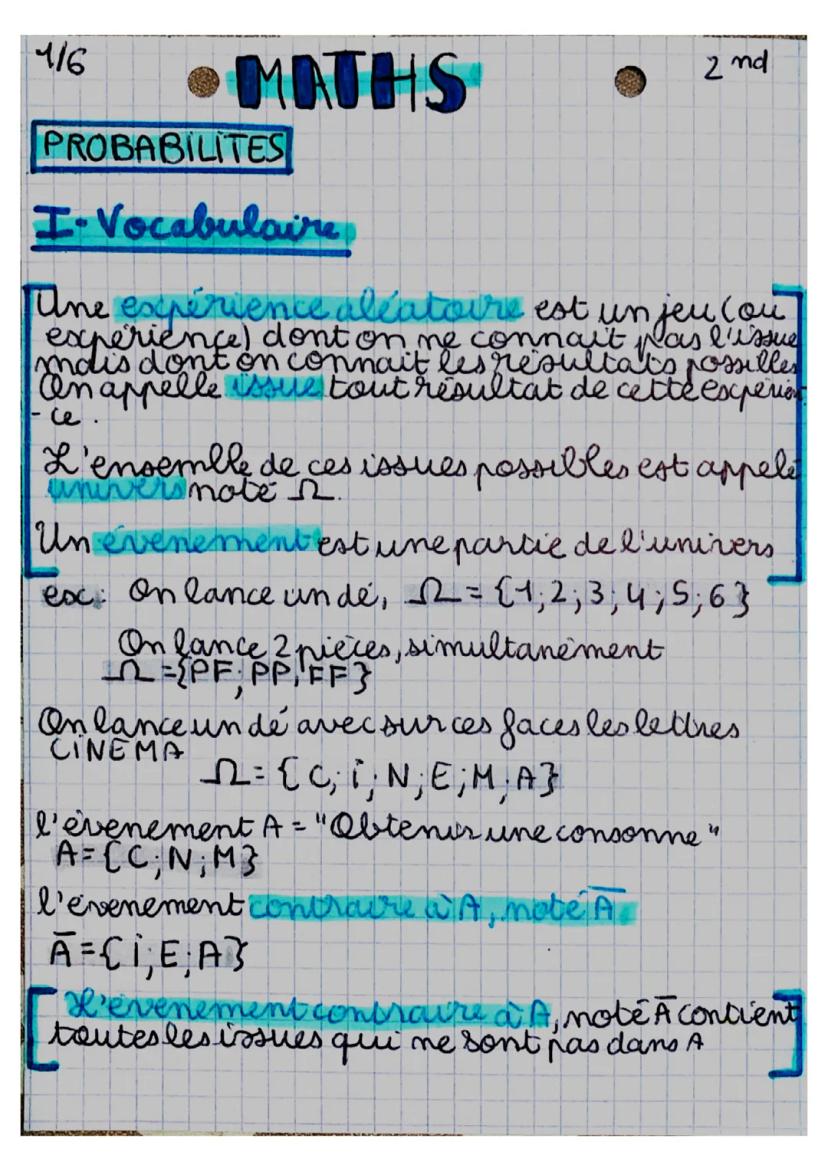 1/6
MATHS
2nd
PROBABILITES
I- Vocabulaire
Une expérience aléatoire est un jeu (ou
expérience) dont on ne connait pas l'issue
mais dont on connait les résultats possibles
On appelle issue tout résultat de cette expérien
-ce.
L'ensemble de ces issues possibles est appelé
univers noté Ω.
Un évenement est une partie de l'univers
ex: On lance un dé, Ω = {1;2;3;4;5;6}
On lance 2 pièces, simultanément
Ω ={PF; PP; FF}
On lance un dé avec sur ces faces les lettres
CINEMA
Ω= { C; i; N; E; M; A}
l'évenement A = "Obtenir une consonne"
A={C; N; M}
l'évenement contraire à A, noté Ā.
Ā={i; E; A}
L'évenement contraire à A, noté Ā contient
toutes les issues qui ne sont pas dans A